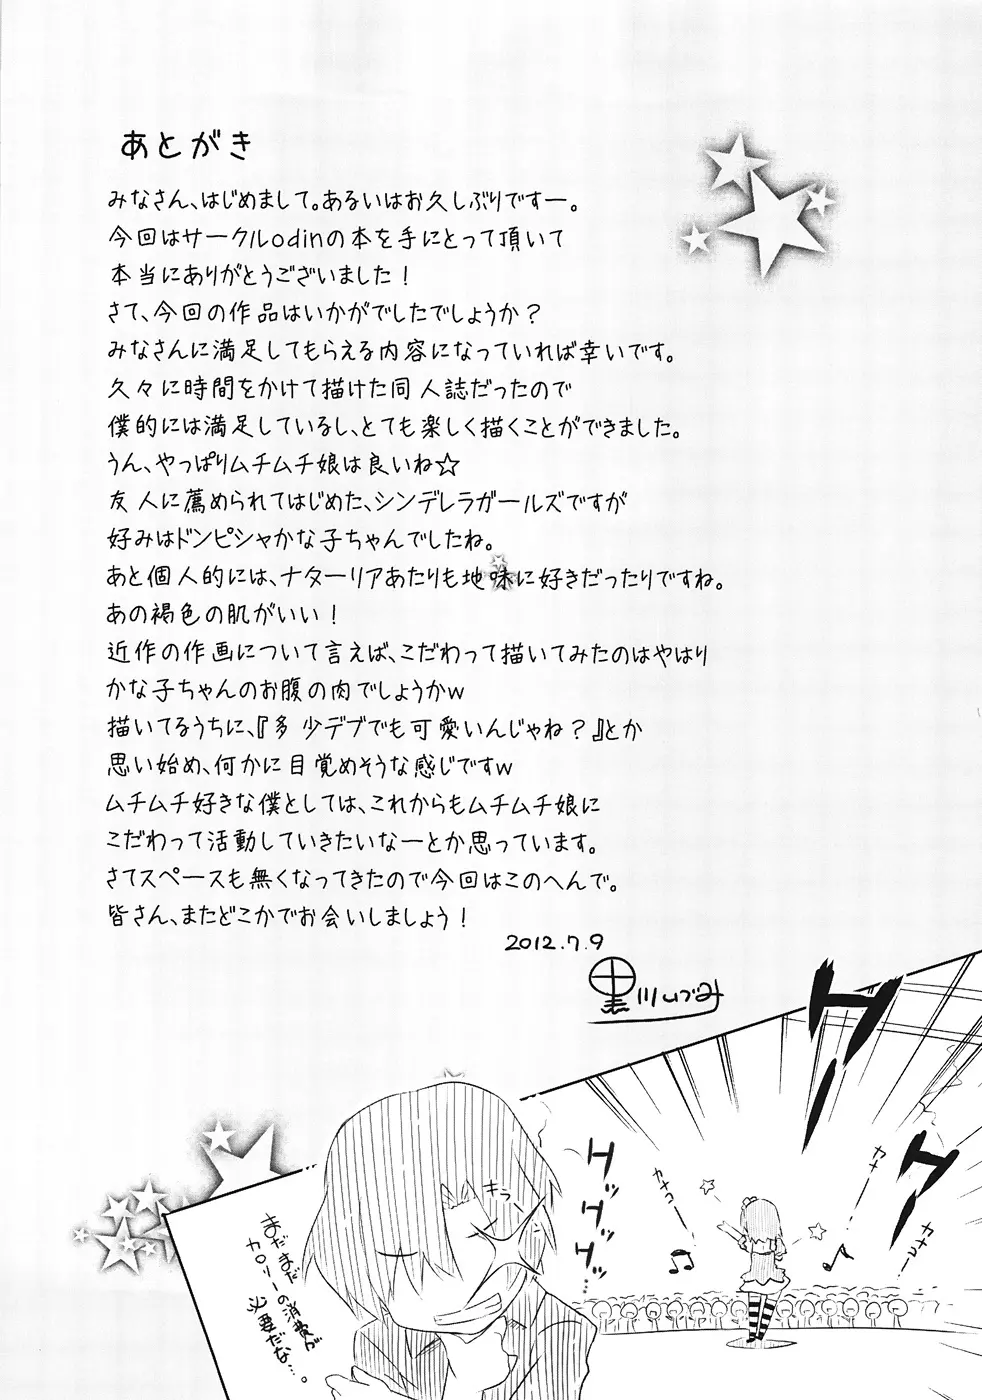 あとがき
みなさん、はじめまして。あるいはお久しぶりですー。
今回はサークルodinの本を手にとって頂いて
本当にありがとうございました！
さて、今回の作品はいかがでしたでしょうか？
みなさんに満足してもらえる内容になっていれば幸いです。
久々に時間をかけて描けた同人誌だったので
僕的には満足しているし、とても楽しく描くことができました。
うん、やっぱりムチムチ娘は良いね☆
友人に薦められてはじめた、シンデレラガールズですが
好みはドンピシャかな子ちゃんでしたね。
あと個人的には、ナターリアあたりも地味に好きだったりですね。
あの褐色の肌がいい！
近作の作画について言えば、こだわって描いてみたのはやはり
かな子ちゃんのお腹の肉でしょうかw
描いてるうちに、『多少デブでも可愛いんじゃね？』とか
思い始め、何かに目覚めそうな感じですw
ムチムチ好きな僕としては、これからもムチムチ娘に
こだわって活動していきたいなーとか思っています。
さてスペースも無くなってきたので今回はこのへんで。
皆さん、またどこかでお会いしましょう！
2012.7.9
黒川いづみ
ワー
ワー
カナコー
カナコー
キラーン
まだまだ
カロリーの消費が
必要だな…。